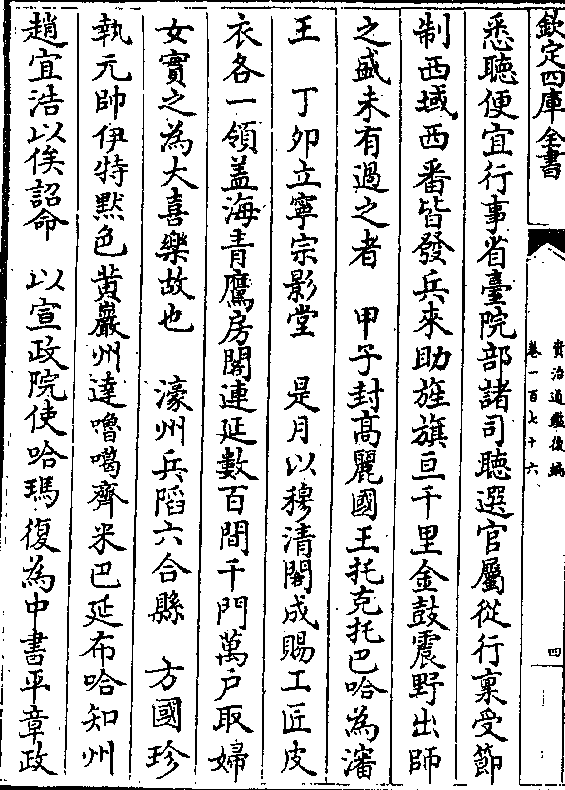 欽定四庫全書
資治通鑑後編
卷一百七十六
四
悉聽便宜行事省臺院部諸司聽選官屬從行稟受節
制西域西番皆發兵來助旌旗亘千里金鼓震野出師
之盛未有過之者　甲子封高麗國王托克托巴哈為瀋
王　丁夘立寧宗影堂　是月以穆清閣成賜工匠皮
衣各一領盖海青鷹房閣連延數百間千門萬户取婦
女實之為大喜樂故也　濠州兵䧟六合縣　方國珍
執元帥伊特黙色黄巖州達嚕噶齊米巴延布哈知州
趙宜浩以俟詔命　以宣政院使哈瑪復為中書平章政